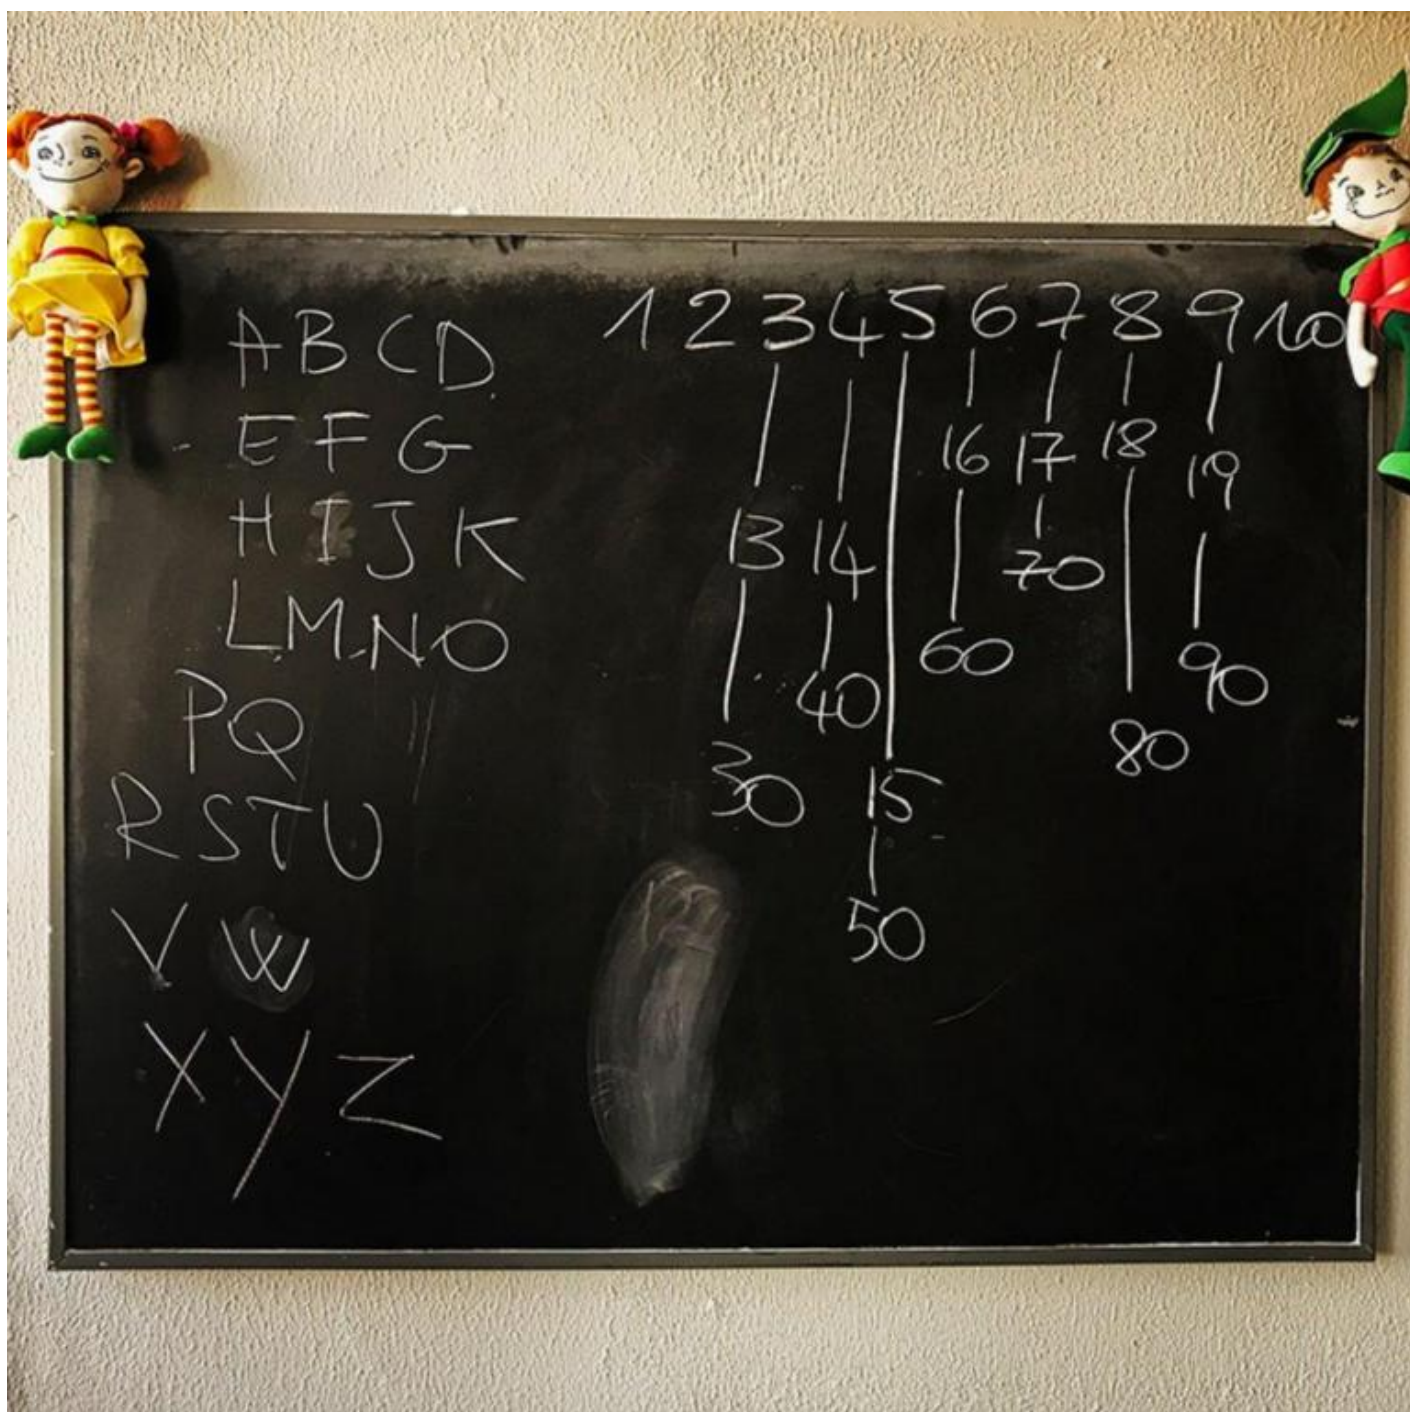 A B C D
E F G
H I J K
L M N O
P Q
R S T U
V W
X Y Z
1 2 3 4 5 6 7 8 9 10
16 17 18 19
13 14
70
60
90
40
80
30 15
50